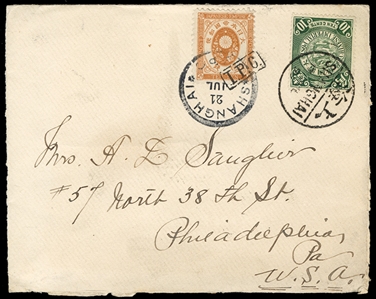 I.P.O
SHANGHAI
21
JUL
SHANGHAI
10 10
Mrs. A. E. Sanglier
#57 North 38 th St.
Philadelphia,
Pa
U.S.A.